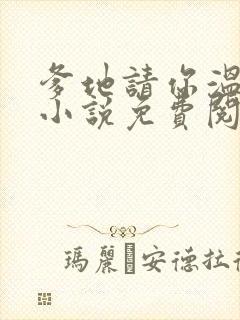 爹地請你溫
小說免費閱
瑪麗安德拉